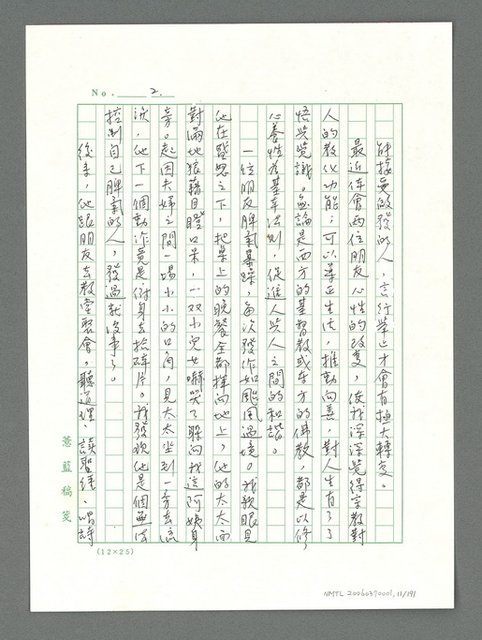 No. 2.
能接受啟發的人，言行舉止才會有極大轉變。
最近體會兩位朋友心性的改變，使我深深覺得宗教對
人的教化功能；可以導正生優，推動向善，對人生有了了
悟與覺識。無論是西方的基督教或東方的佛教，都是以修
心養性為基本法則，促進人與人之間的和諧。
一位朋友脾氣暴躁，每次發作如颱風過境。我親眼見
他在盛怒之下，把桌上的晚餐全都揮向地上，他的太太面
對滿地狼藉目瞪口呆，一双小兒女嚇哭了躲向我這阿姨身
旁。起因夫婦之間一場小小的口角，見太太坐到一旁去流
淚，他下一個動作竟是俯身去撿碎片。我發現他是個無法
控制自己脾氣的人，發過就沒事了。
後來，他跟朋友去教堂聚會，聽道理、談聖經、唱詩
薔藍稿箋
(12×25)
NMTL 20060370001, 11/191